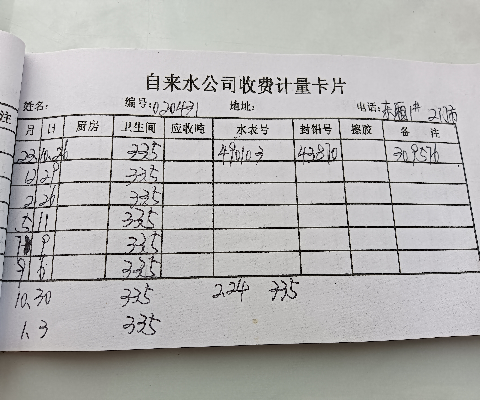 自来水公司收费计量卡片
姓名: 编号: 020431 地址: 电话: 东顾1#
注 月 日 厨房 卫生间 应收吨 水表号 封铅号 搡胶 备 注
22/10.26 335 49010.3 43870 309576
12 29 335
2 26 335
5 11 335
7 9 335
9 6 335
10. 30 335 2.24 335
1. 3 335